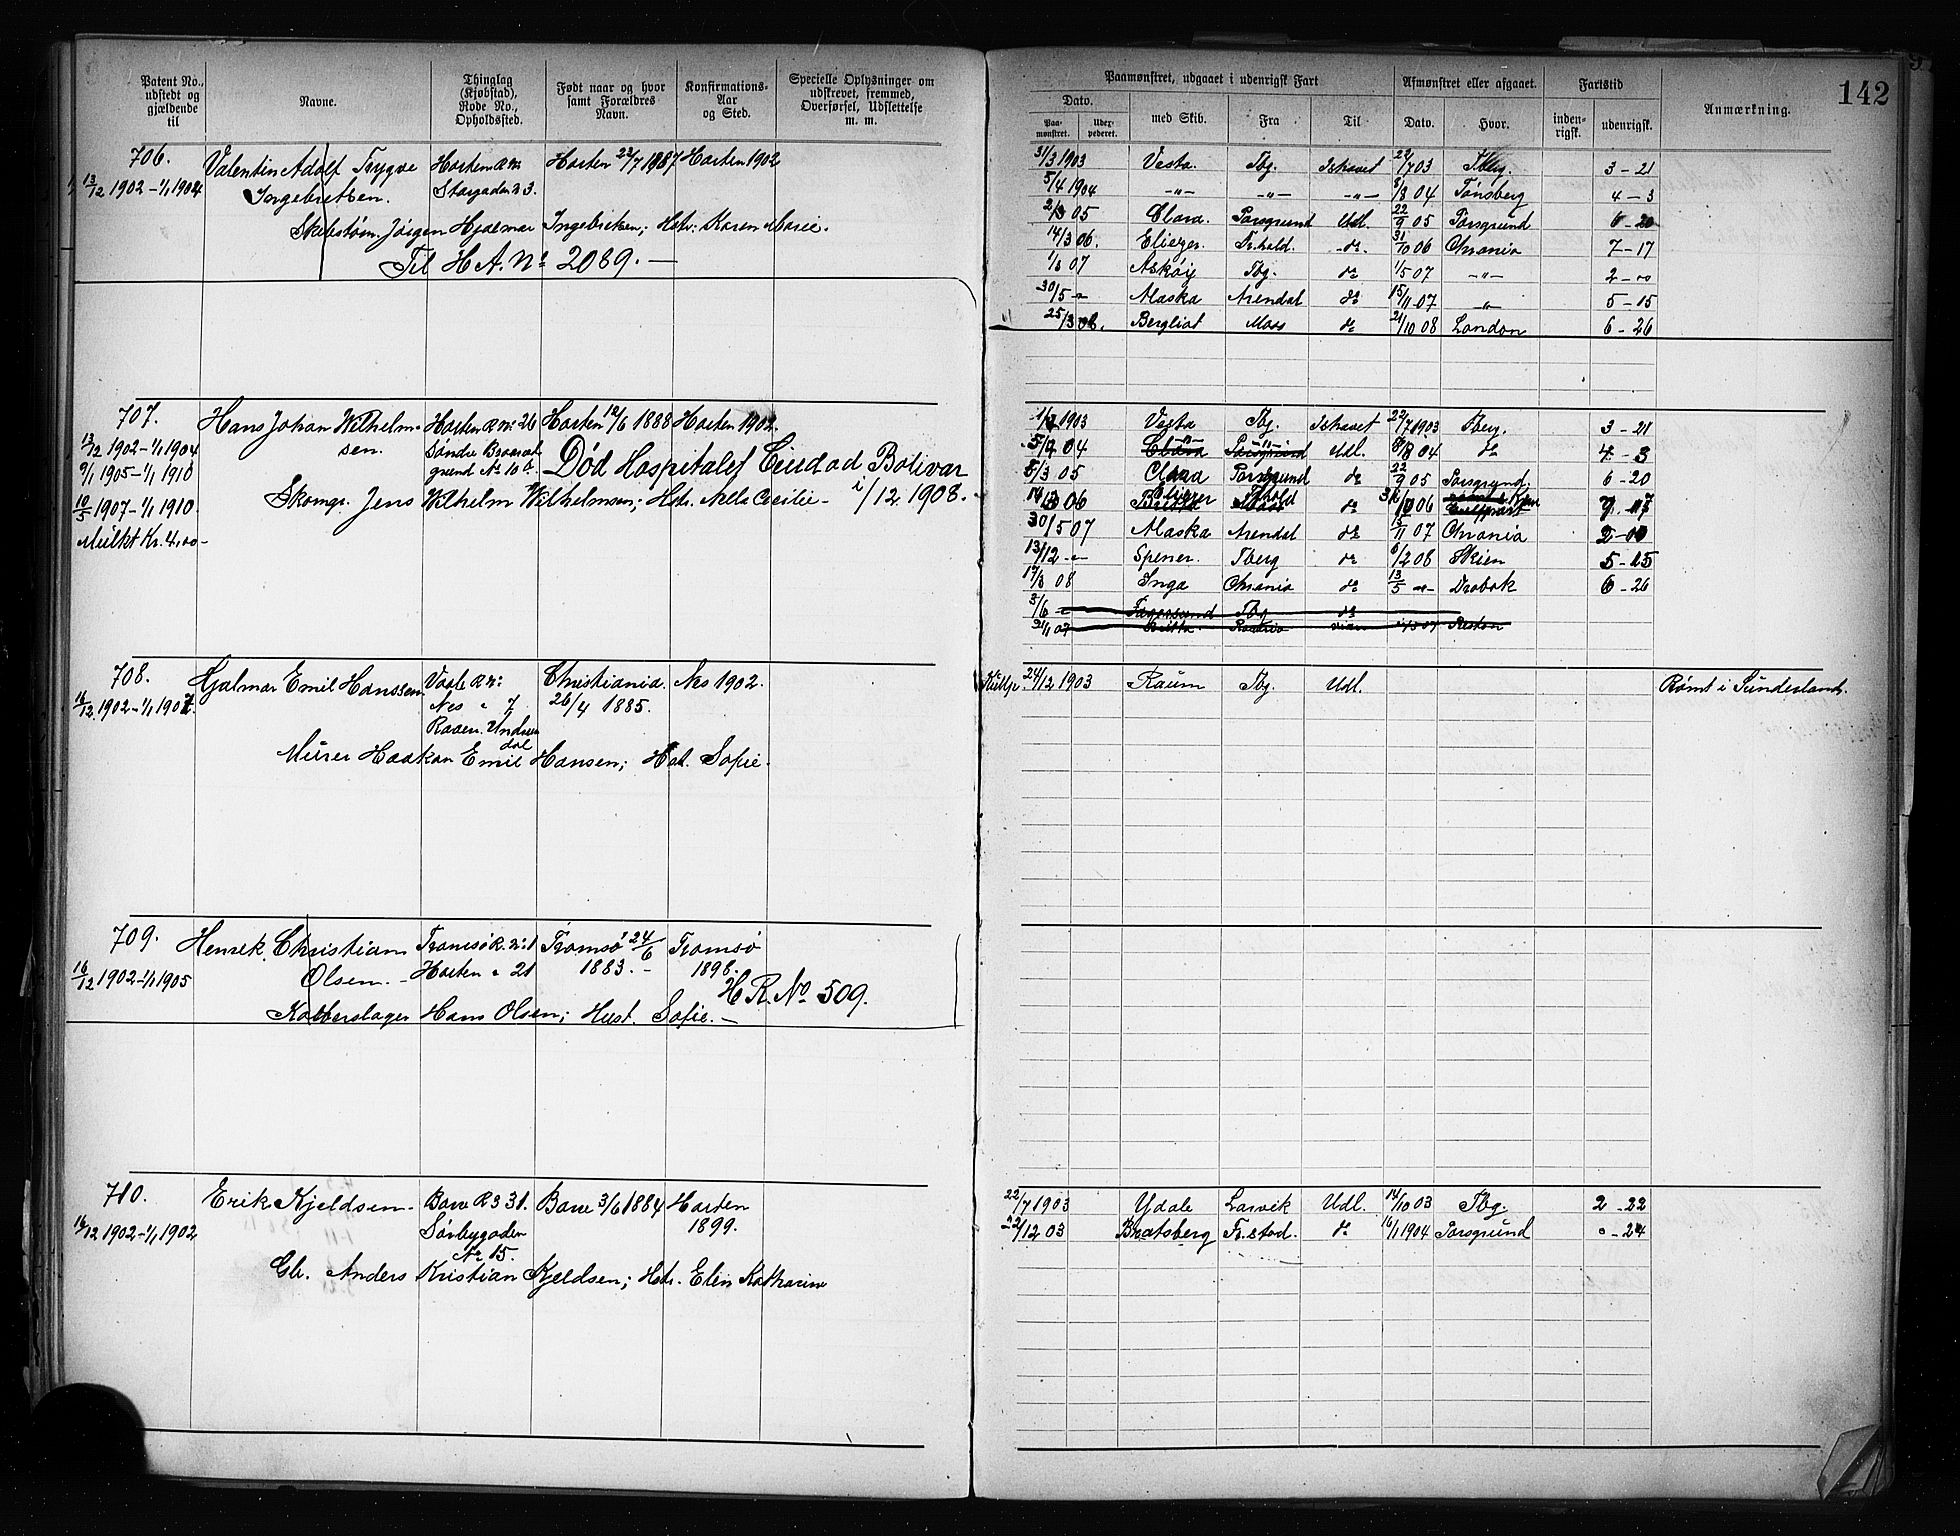 142
Patent No., udstedt og gjældende til
Navne.
Thinglag (Kjøbstad), Rode No., Opholdssted.
Født naar og hvor samt Forældres Navn.
Konfirmations-Aar og Sted.
Specielle Oplysninger om udskrevet, fremmed, Overførsel, Udslettelse m. m.
Paamønstret, udgaaet i udenrigsk Fart
Afmønstret eller afgaaet.
Fartstid
Anmærkning.
Dato.
Paa-mønstret.
Uder-pederet.
med Skib.
Fra
Til
Dato.
Hvor.
inden-rigsk.
udenrigsk.
706.
13/12 1902 - 1/1 1904
Valentin Adolf Trygve
Ingebretsen.
Horten R №
Storgaden № 3.
Horten 22/7 1887
Horten 1902
Jørgen Hjalmar Ingebretsen; Hstr: Karen Marie.
Til H A. No 2089. —
31/3 1903 Vesta. Tbg. Ishavet 22/7 03 Tberg. 3 - 21
5/4 1904 -"- -"- -"- 8/8 04 Tønsberg 4 - 3
2/3 05 Clara. Porsgrund Udl. 22/9 05 Porsgrund 6 - 20
14/3 06. Eliezer. Fr.hald. do 31/10 06 Chrania 7 - 17
07 Askøy Tbg. do 1/5 07 -"- 2 - 00
30/5 -"- Alaska Arendal do 15/11 07 " 5 - 15
25/3 08. Bergliot Moss do 21/10 08 London 6 - 26
707.
13/12 1902 - 1/1 1904
9/1 1905 - 1/1 1910
10/5 1907 - 1/1 1910.
Mulkt Kr. 4,00 -
Hans Johan Wilhelm-
sen.
Horten R №: 26
Søndre Braarud
grund № 10 a.
Horten 12/6 1888
Horten 1902.
Død Hospitalet Ciudad Bolivar
i/12 1908.
Skomgr. Jens Wilhelm Wilhelmsen; Hstr. Nella Cecilie -
1903 Vesta Tbg. Ishavet 22/7 1903 Tberg. 3 - 21
04 Clara Porsgrund Udl. 8/8 04 do 4 - 3
5/3 05 Clara Porsgrund do 22/9 05 Porsgrund. 6 - 20
06 Eliezer do 06
30/5 07 Alaska Arendal do 15/11 07 Chrania
13/12 -"- Spener. Tberg do 6/2 08 Skien 5 - 15
17/3 08 Inga Chrania do 13/5 -"- Drøbak 6 - 26
3/6 - Fagersand Tbg do
708.
16/12 1902 - 1/1 1907.
Hjalmar Emil Hanssen
Vaale R №:
Nes " 7
Christiania.
26/4 1885.
Nes 1902.
Murer Haakon Emil Hansen; Hst. Sofie.
24/12 1903 Raum Tbg. Udl.
Rømt i Sunderland.
709.
16/12 1902 - 1/1 1905
Henrik Christian
Olsen. -
Tromsø R. №: 1
Horten " 21
Tromsø 24/6
1883. -
Tromsø
1898.
H R. No 509.
Kobberslager Hans Olsen; Hust. Sofie. -
710.
16/12 1902 - 1/1 1902
Erik Kjeldsen.
Borre R 3 31.
Sørbygaden
№ 15.
Borre 3/6 1884
Horten
1899.
Gb. Anders Kristian Kjeldsen; Hstr. Elin Katharine
22/7 1903 Ydale Larvik Udl. 14/10 03 Tbg. 2 - 22
22/12 03 Bratsberg Fr.stad. do 16/1 1904 Porsgrund 0 - 24